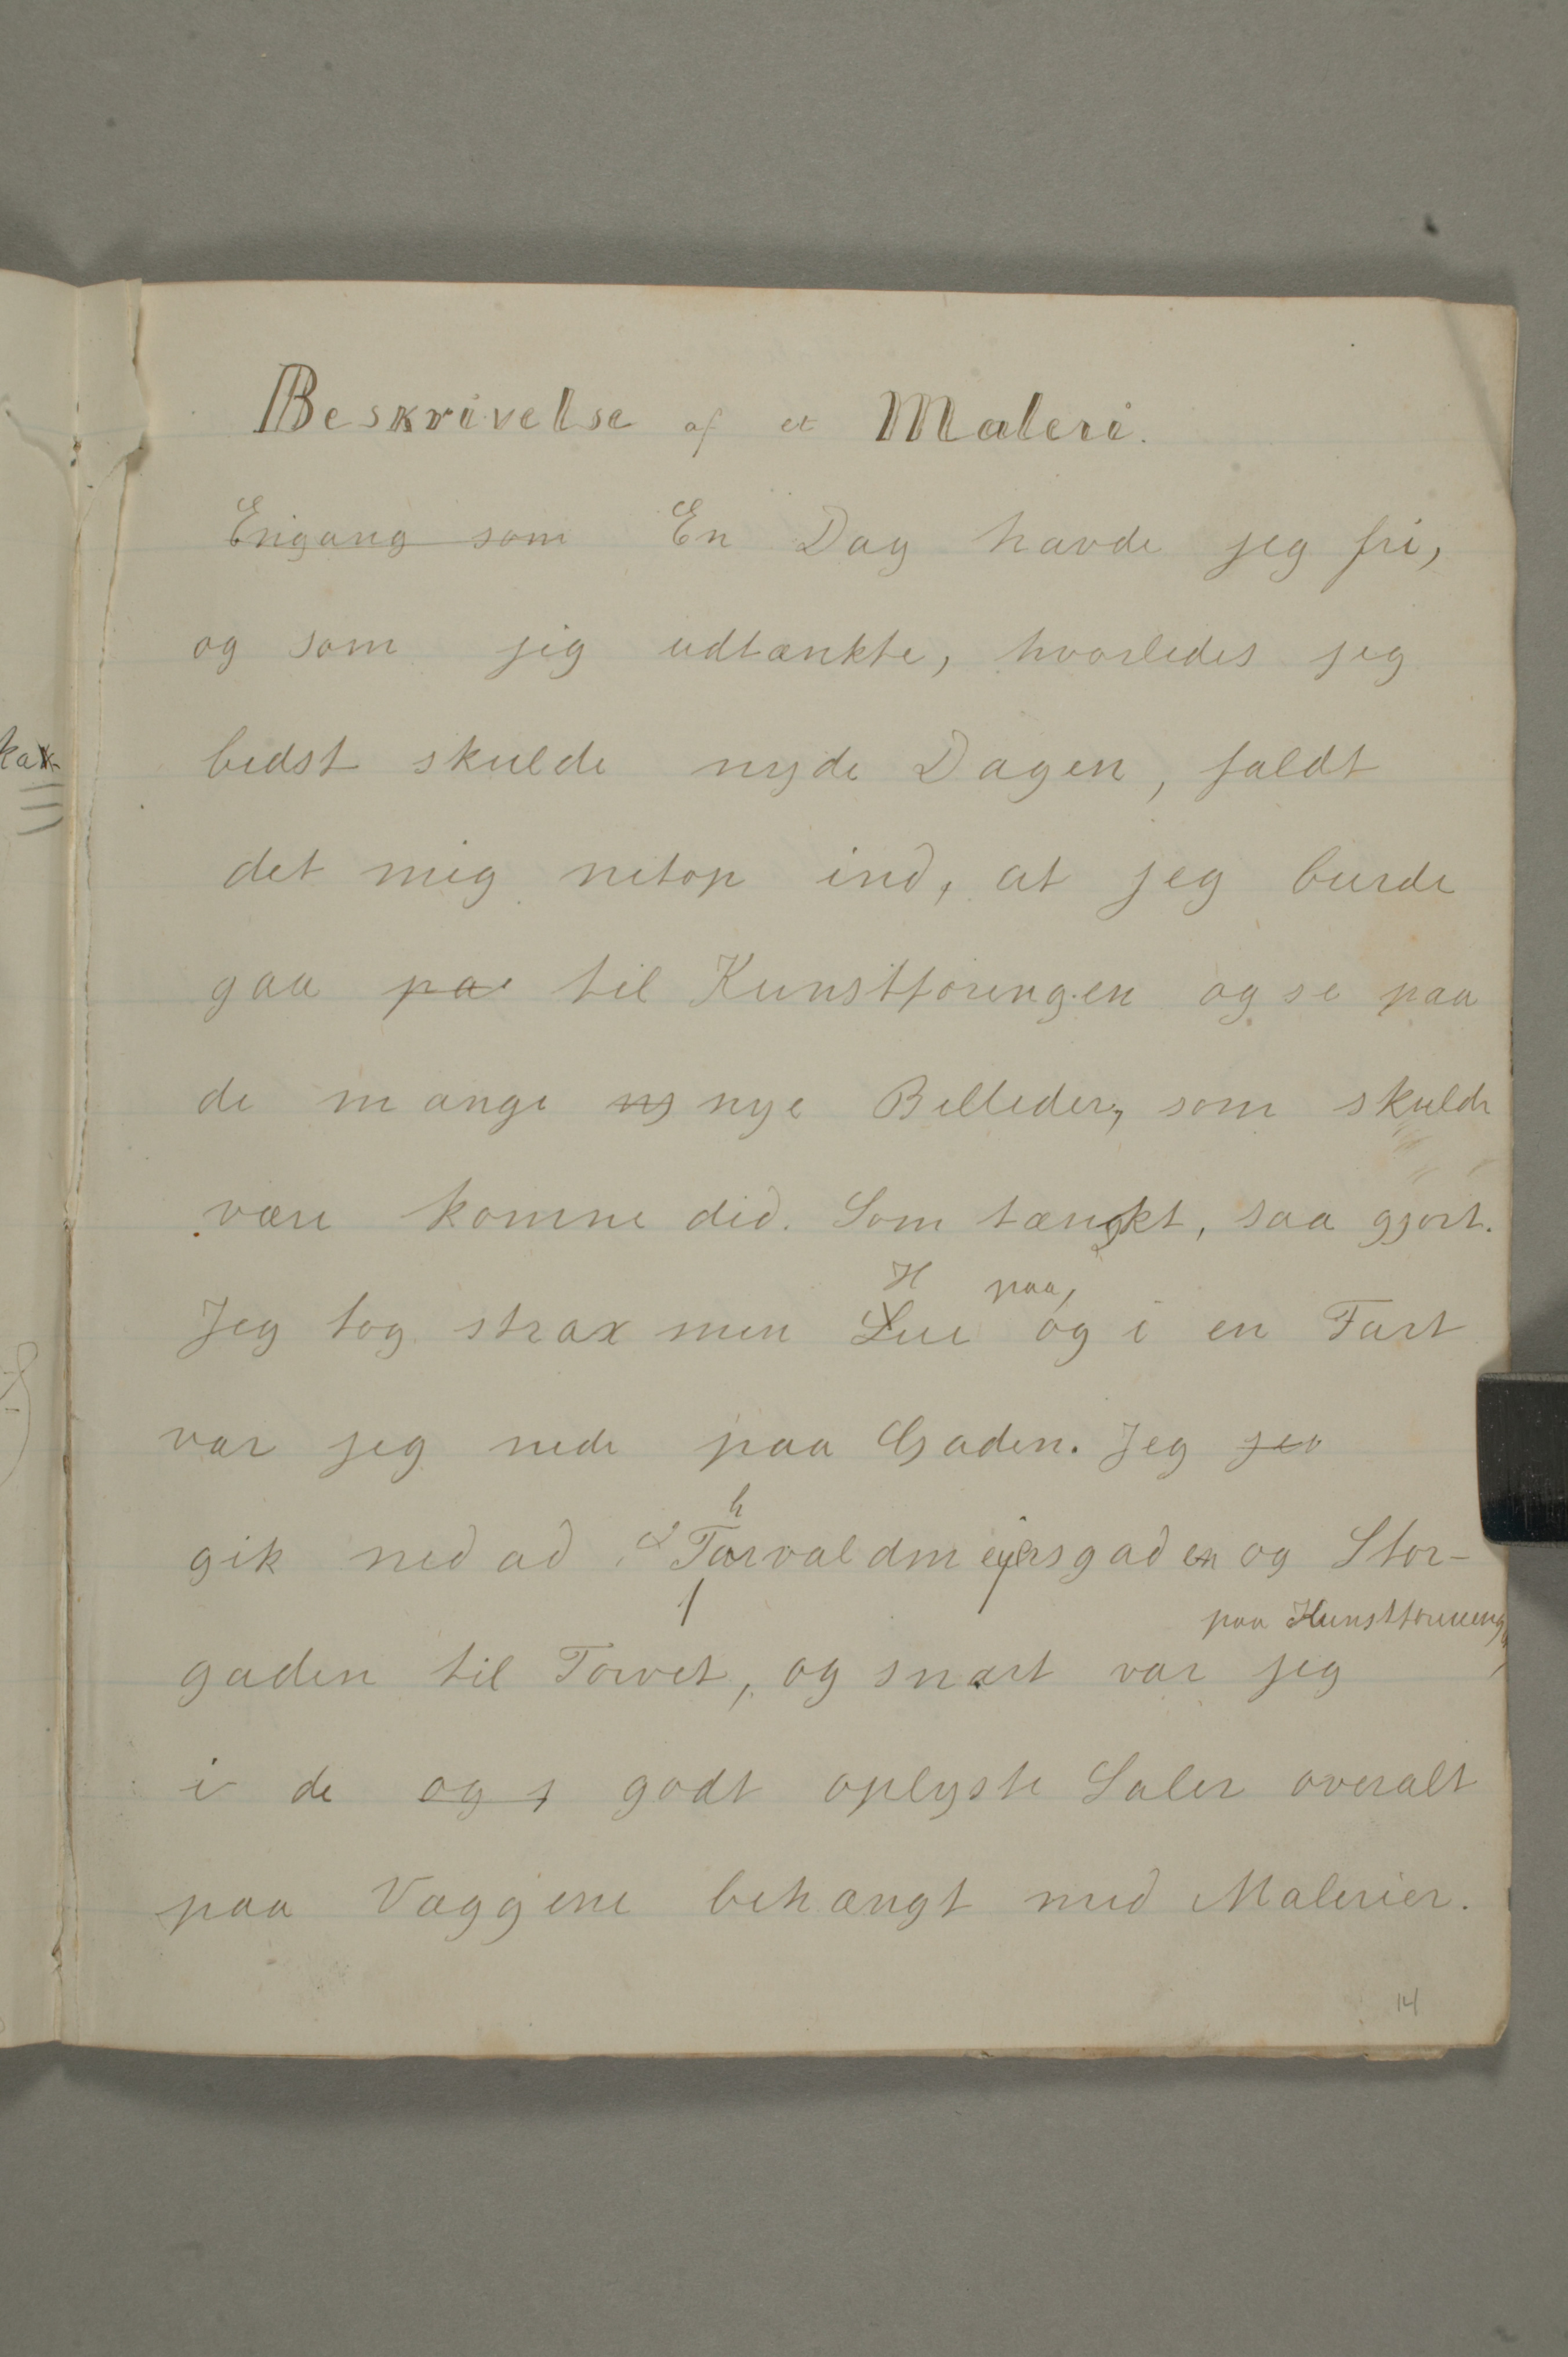 Beskrivelse af et Maleri.
Engang som En Dag havde jeg fri,
og som jeg udtænkte, hvorledes jeg
bedst skulde nyde Dagen, faldt
det mig netop ind, at jeg burde
gaa paa til Kunstforeningen og se paa
de mange ny nye Billeder, som skulde
være komne did. Som tængkt, saa gjort.
H paa,
Jeg tog strax min Lue og i en Fart
var jeg nede paa Gaden. Jeg
h
gik ned ad Torvaldmeyersgaden og Stor-
paa Kunstforening
gaden til Torvet, og snart var jeg
i de og godt oplyste Saler overalt
paa Væggene behængt med Malerier.
14
kak